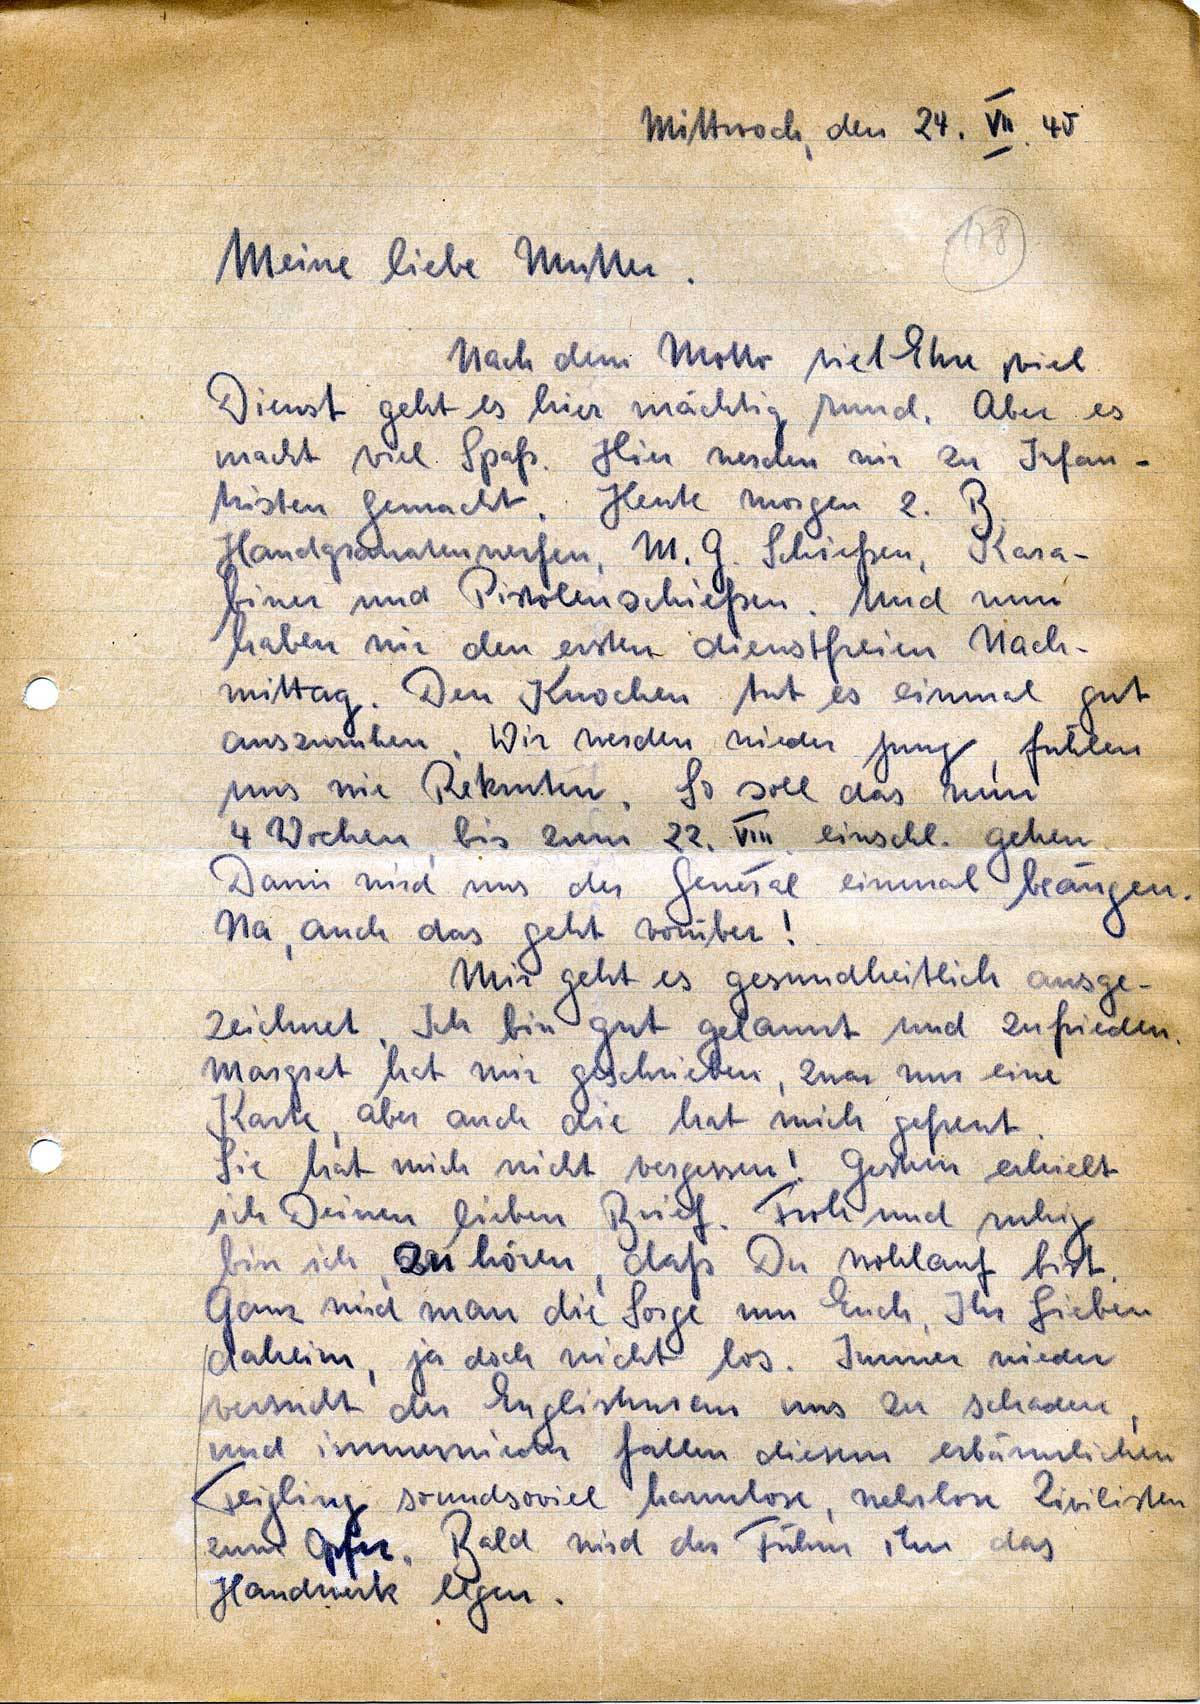 Mittwoch, den 24. VII. 40
128
Meine liebe Mutter.
Nach dem Motto viel Ehre, viel
Dienst geht es hier mächtig rund. Aber es
macht viel Spaß. Hier werden wir zu Infan-
tristen gemacht. Heute morgen z. B.
Handgranatenwerfen, M. G. Schießen, Kara-
biner und Pistolenschießen. Und nun
haben wir den ersten dienstfreien Nach-
mittag. Den Knochen tut es einmal gut
auszuruhen. Wir werden wieder jung, fühlen
uns wie Rekruten. So soll das nun
4 Wochen bis zum 22. VIII. einschl. gehen.
Dann wird uns der General einmal beäugen.
Na, auch das geht vorüber!
Mir geht es gesundheitlich ausge-
zeichnet. Ich bin gut gelaunt und zufrieden.
Margret hat mir geschrieben, zwar nur eine
Karte, aber auch die hat mich gefreut.
Sie hat mich nicht vergessen! Gestern erhielt
ich Deinen lieben Brief. Froh und ruhig
bin ich, zu hören, daß Du wohlauf bist.
Ganz wird man die Sorge um Euch, Ihr Lieben
daheim, ja doch nicht los. Immer wieder
versucht der Englishman uns zu schaden,
und immerwieder fallen diesem erbärmlichen
Feigling soundsoviel harmlose, wehrlose Zivilisten
zum Opfer. Bald wird der Führer ihm das
Handwerk legen.